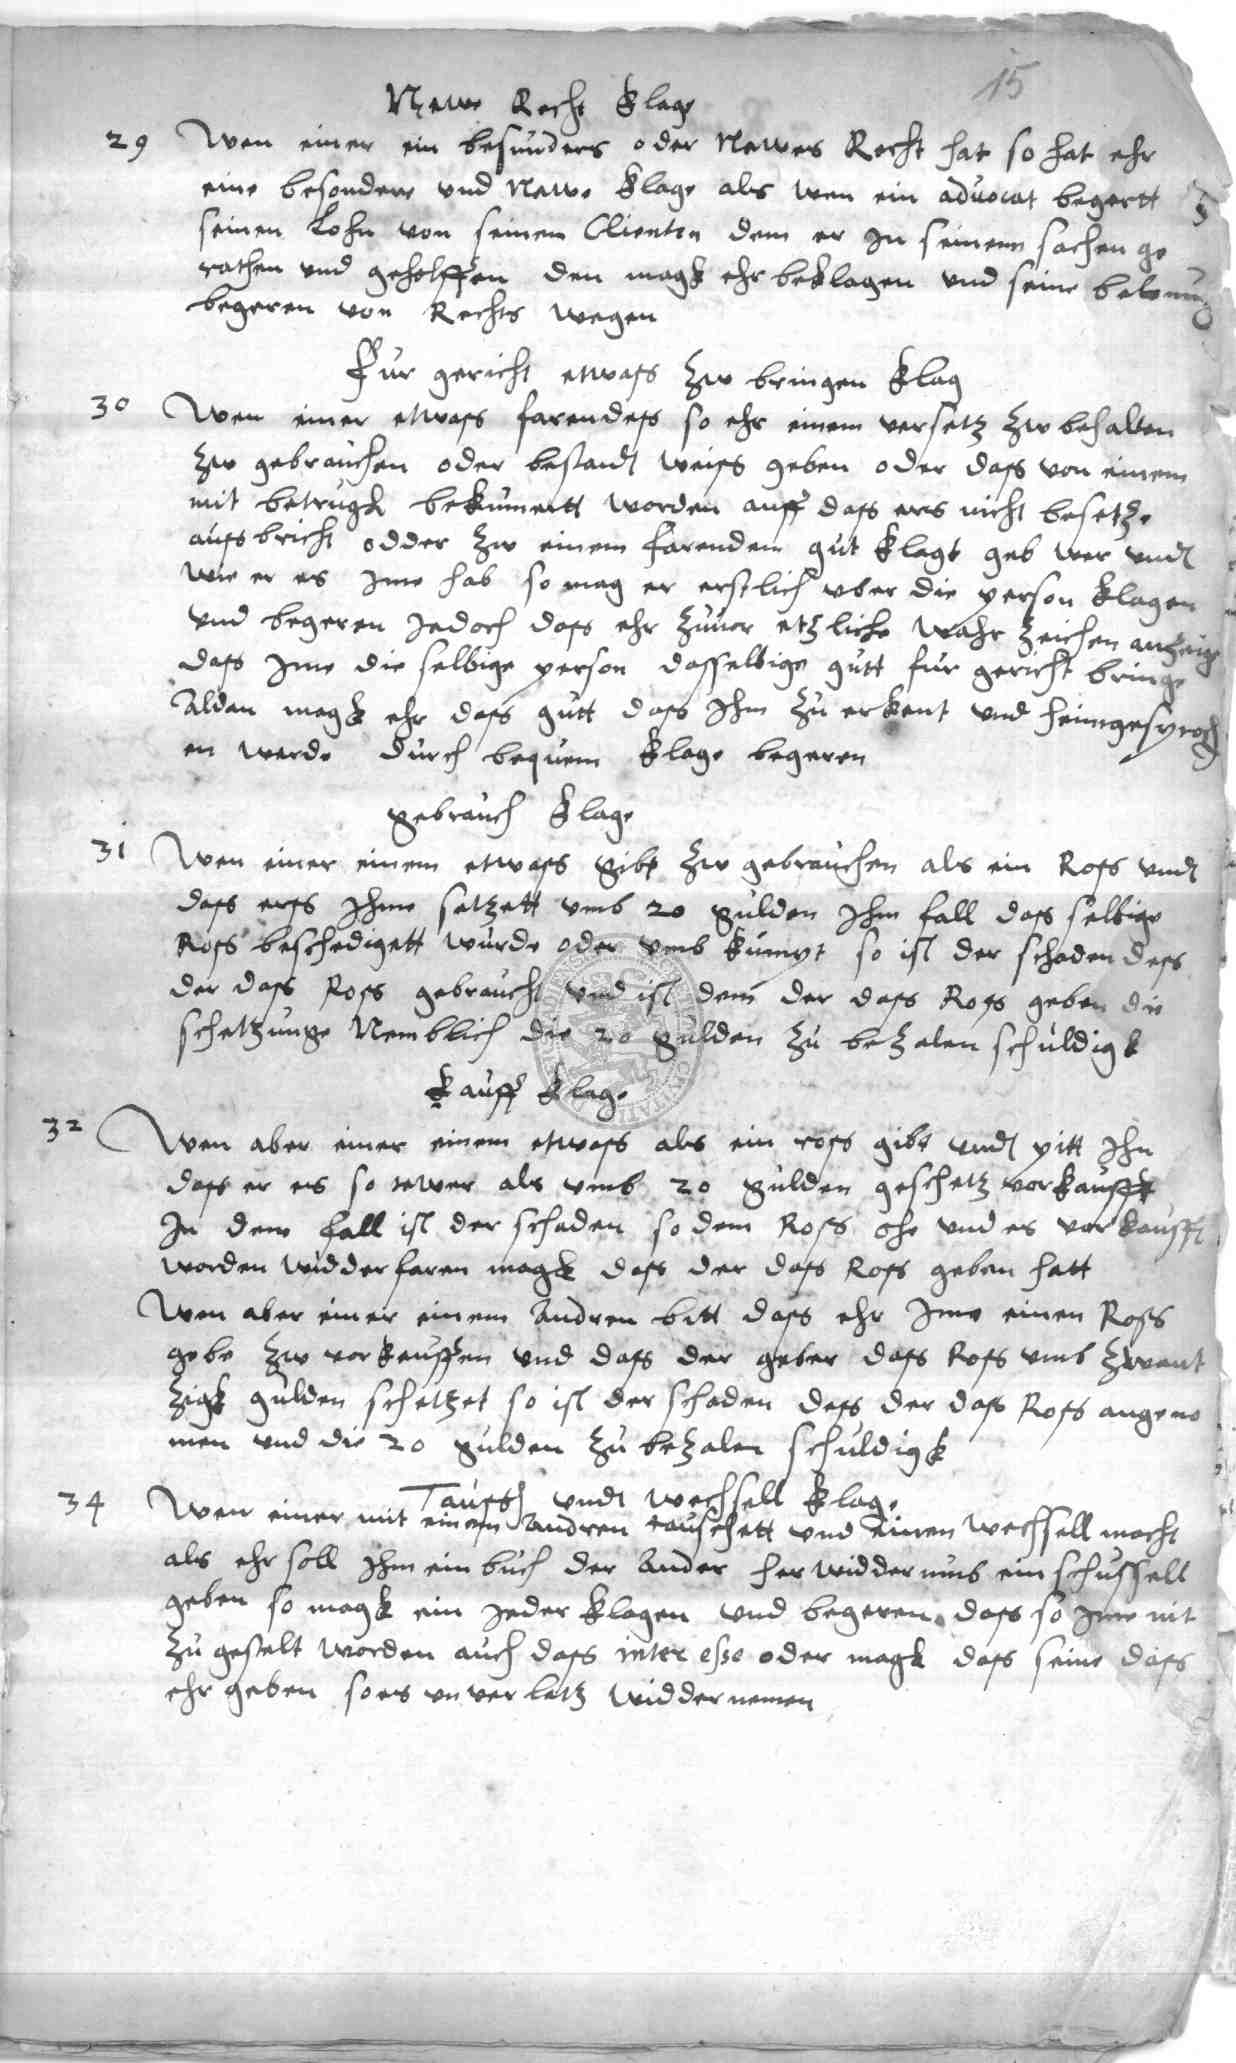 15
Newe Recht Klage
29 Wen einer ein besunders oder Newes Recht hat so hat ehr
eine besondere vnd Newe Klage als wen ein aduocat begertt
seinen Lohn von seinem Clienten dem er in seinenn sachen ge
rathen vnd geholffen den magk ehr beklagen vnd seine belonung
begeren von Rechts wegen
Fur gericht etwass zw bringen Klag
30 Wen einer etwass farendess so ehr einem versetz zw behalten
zw gebrauchen oder bestandt weiss geben oder dass von einem
mit betrugk bekumertt worden auff dass ers nicht besetze
aussbricht odder zw einem farendem gut klagt geb wer vndt
wie er es Ime hab so mag er erstlich vber die person klagen
vnd begeren Jedoch dass ehr zuuor etzliche wahr zeichen anzeige
dass Ime die selbige person dasselbige gutt fur gericht bringe
Aldan magk ehr dass gutt dass Ihm zu erkent vnd heimgesproch
en werde durch bequem klage begeren
Gebrauch Klage
31 Wen einer einem etwass gibt zw gebrauchen als ein Ross vndt
dass erss Ihme setzett vmb 20 gulden Ihm fall dass selbige
Ross beschedigett wurde oder vmb kumpt so ist der schaden dess
der dass Ross gebraucht vnd ist dem der dass Ross geben die
schetzunge Nemblich die 20 gulden zu bezalen schuldigk
Kauff Klage
32 Wen aber einer einem etwass als ein ross gibt vndt pitt Ihn
dass er es so tewer als vmb 20 gulden geschetz vorkaufft
In dem fall ist der schaden so dem Ross ehe vnd es vorkaufft
worden widderfaren magk dess der dass Ross geben hatt
Wen aber einer einem Andren bitt dass ehr Ime einen Ross
gebe zw vorkeuffen vnd dass der geber dass Ross vmb zwent
zigk gulden schetzet so ist der schaden dess der dass Ross angeno
men vnd die 20 gulden zu bezalen schuldigk
Taussh vndt wechsell Klage
34 Wen einer mit einem Andren tauschett vnd einen wechsell macht
als ehr soll Ihm ein buch der Ander herwidderumb ein schussell
geben so magk ein Jeder klagen vnd begeren dass so Ime nit
zu gestelt worden auch dass inter esse oder magk dass seine dass
ehr geben so es vnverletz widdernemen